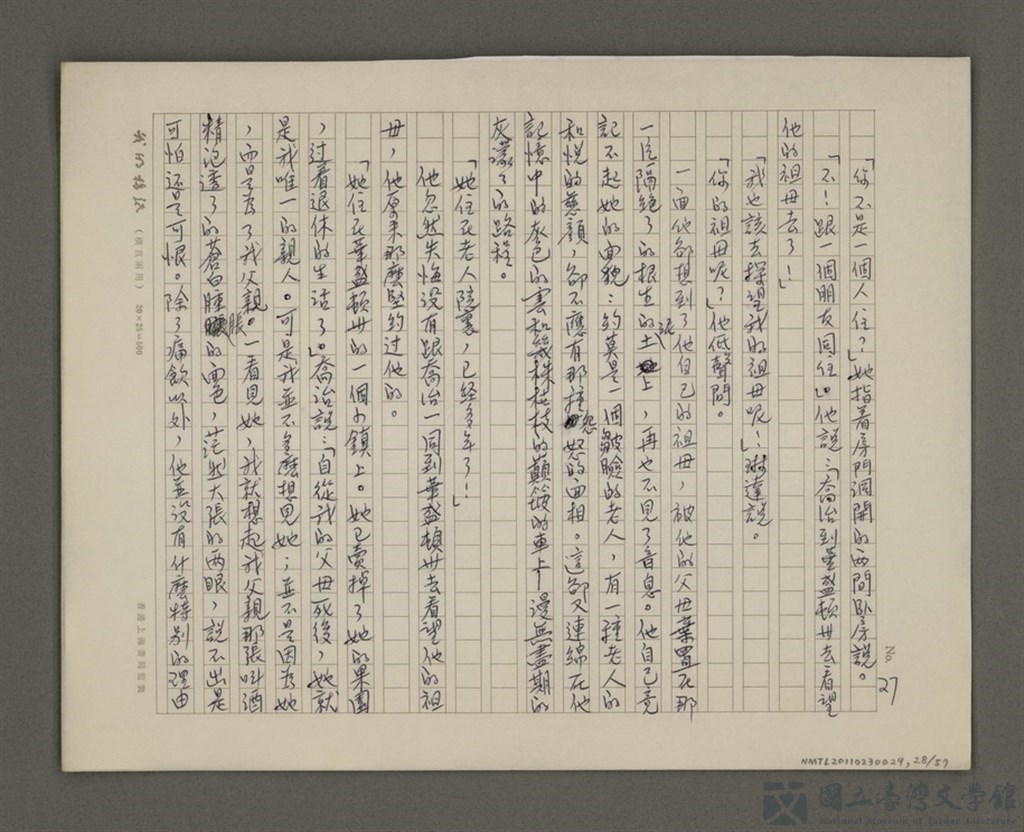 No. 27
「你不是一個人住？」她指着房門洞開的两間卧房説。
「不！跟一個朋友同住。」他説：「喬治到華盛頓州去看望
他的祖母去了！」
「我也該去探望我的祖母呢！」琳達説。
「你的祖母呢？」他低聲問。
一面他卻想到了他自己的祖母，被他的父母棄置在那
一片隔絕了的根生的土泥上，再也不見了音息。他自己竟
記不起她的面貌：約莫是一個皺臉的老人，有一種老人的
和悦的慈顏，卻不應有那種怨怒的面相。這卻又連綿在他
記憶中的蒼色的雲和幾株枯枝的顛簸的車上漫無盡期的
灰濛々的路程。
「她住在老人院裏，已经多年了！」
他忽然失悔没有跟喬治一同到華盛頓州去看望他的祖
母，他原来那麼坚約过他的。
「她住在華盛頓州的一個小鎮上。她已賣掉了她的果園
，过着退休的生活了。」喬治説：「自從我的父母死後，她就
是我唯一的親人。可是我並不怎麼想見她；並不是因為她
，而是為了我父親。一看見她，我就想起我父親那張叫酒
精泡透了的蒼白腫脹的面色，茫然大張的两眼，説不出是
可怕还是可恨。除了痛飲以外，他並没有什麼特别的理由
我的稿紙（橫直兩用）20×25=500
香港上海書局監製
NMTL20110230029, 28/57
國立臺灣文學館
National Museum of Taiwan Literature